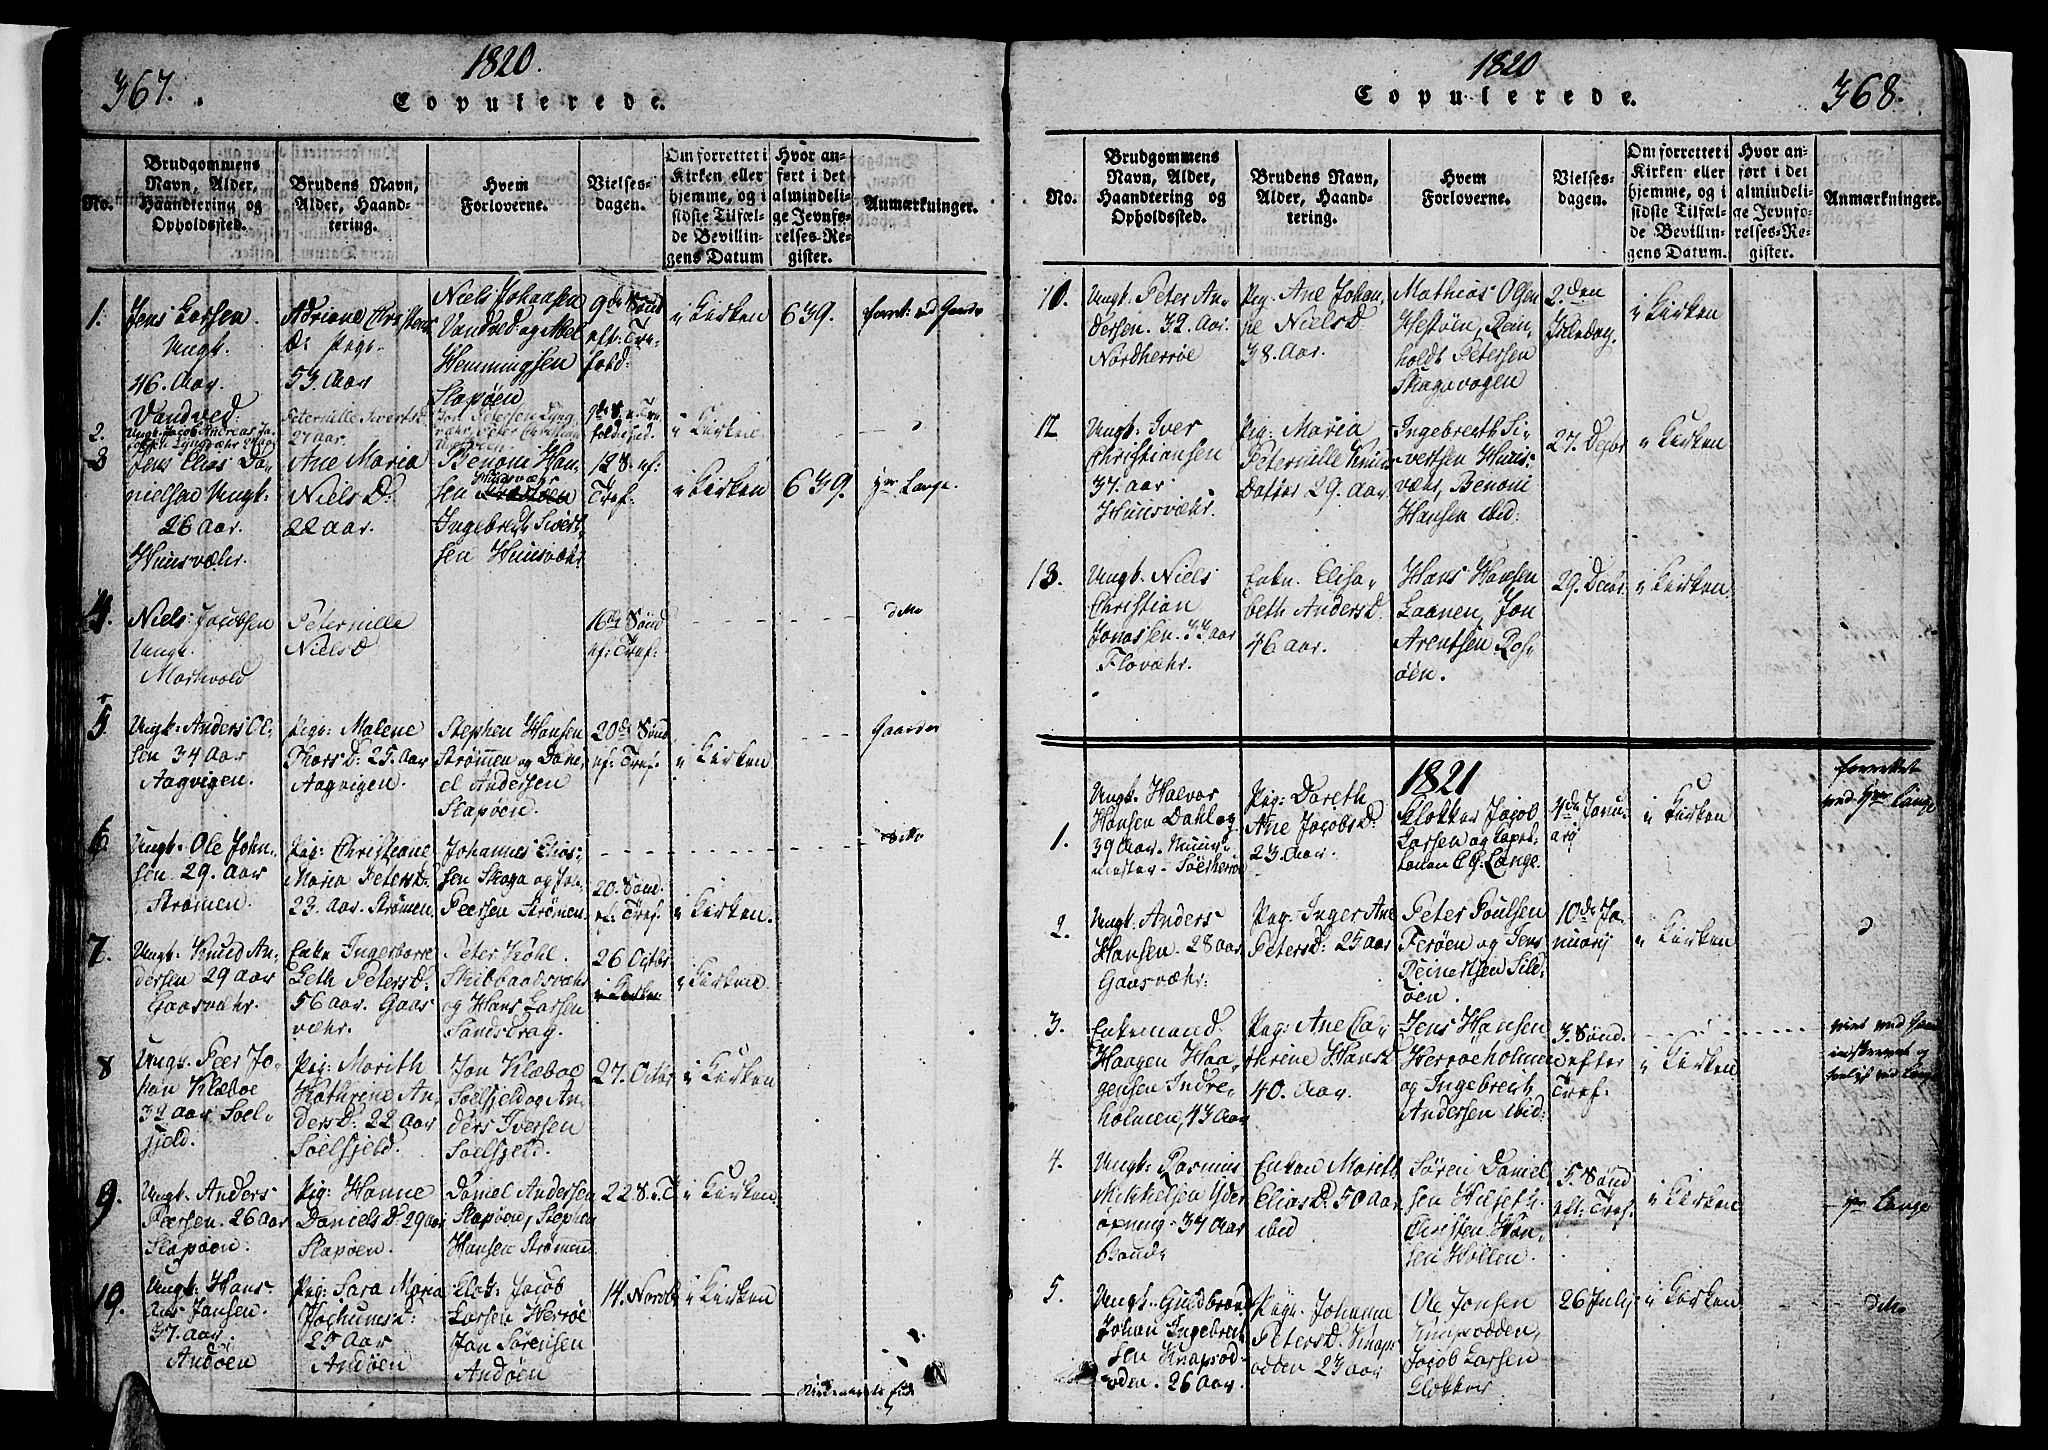 367.
1820.
Copulerede.
No.
Brudgommens
Navn, Alder,
Haandtering og
Opholdssted.
Brudens Navn,
Alder, Haand-
tering.
Hvem
Forloverne.
Vielses-
dagen.
Om forrettet i
Kirken eller
hjemme, og i
sidste Tilfæl-
de Bevillin-
gens Datum
Hvor an-
ført i det
almindeli-
ge Jevnfø-
relses-Re-
gister.
Anmærkninger.
1.
Jens Larsen
Ungk.
46. Aar.
Vandved
Adriane Christens
D: Pige.
53. Aar
Niels Johansen
Vandved og Abel
Hemmingsen
Slapøen
9de Sønd
eft: Tre-
fold:
i Kirken
639.
2.
Ungk. Jacob Andreas Ja-
Peternille Sivertsd.
27 aar.
i Kirken
3
Jens Elias Da-
nielsen Ungk.
26 Aar.
Huusvæhr.
Ane Maria
Niels D.
22 aar.
Benoni Han-
sen Huusvæhr
Ingebrecht Sivert-
sen Huusvæhr
12 S. ef:
Tref.
i Kirken
639.
Hr Lange.
4.
Niels Jacobsen
Ungk.
Petternille
Niels D
16de Sønd
ef: Tref:
dtto
5.
Ungk. Anders Ol-
sen 34 Aar
Aagvigen.
Pige: Malene
Thors D: 25. Aar
Aagvigen.
Stephen Hansen
Strømmen og Dani-
el Andersen
Slapøen.
20de Sønd
ef: Tref.
i Kirken
6.
Ungk. Ole John-
sen. 29. aar
Strømen.
Pig: Christiane
Maria Peters D.
23. aar. Strømen.
Johannes Elias-
sen Skaga og Joh.
Peersen Strømen.
20. Sønd.
ef: Tref.
i Kirken.
ditto
7.
Ungk. Knud An-
dersen 29 aar
Gaasvæhr.
Enke Ingeborre
Leth Peters D.
56 aar. Gaas
væhr.
Peter Köhl.
Skibbaadsvæhr
og Hans Larsen
Sandsdrag.
26 Octbr
i Kirken.
8
Ungk. Peer Jo-
han Klæboe
32 aar Søel-
fjeld.
Pig: Marith
Kathrine An-
ders D: 22 aar
Søelfjeld.
Jon Klæboe
Søelfjeld og An-
ders Iversen
Søelfjeld.
27. Octbr
i Kirken
9.
Ungk. Anders
Peersen. 26 aar
Slapøen.
Pig: Hanne
Daniels D. 29 aar
Slapøen.
Daniel Andersen
Slapøen, Stephen
Hansen Strømmen
22 S. e. T.
i Kirken.
10.
Ungk: Hans
Jansen.
37. aar.
Andøen
Pig: Sara Maria
Jochums D:
25 Aar
Andøen
Klok. Jacob
Larsen Herrøe
Jon Sørensen
Andøen
14. Novbr
i Kirken
1820
368.
Copulerede.
No.
Brudgommens
Navn, Alder,
Haandtering og
Opholdssted.
Brudens Navn,
Alder, Haand-
tering.
Hvem
Forloverne.
Vielses-
dagen.
Om forrettet i
Kirken eller
hjemme, og i
sidste Tilfæl-
de Bevillin-
gens Datum.
Hvor an-
ført i det
almindeli-
ge Jevnfø-
relses-Re-
gister.
Anmærkninger.
10.
Ungk. Peter An-
dersen. 32. Aar.
Nordherrøe
Pig. Ane Johan-
ne Niels D.
38. Aar.
Mathias Olsen
Hestøen, Rein-
holdt Petersen
Skagavogen
2.den
Juledag.
i Kirken
12
Ungk: Iver
Christiansen
37. aar.
Huusvæhr.
Pig: Maria
Peternille Knuds
Datter 29. Aar.
Ingebrecth Si-
vertsen Huus-
væhr, Benoni
Hansen ibid:
27. Decbr
i Kirken
13.
Ungk. Niels
Christian
Jonassen. 33 aar
Flovæhr.
Enke. Elisa-
beth Anders D.
46 aar.
Hans Hansen
Laanen, Jon
Arentsen Ros-
øen.
29. Decbr.
i Kirken
1821
1.
Ungk. Halvor
Hansen Dahl og
39 Aar. Muur-
mester. Søetherrøe
Pig: Dareth
Ane Jacobs D:
23 Aar.
Klokker Jacob
Larsen og Capel-
lanen C. G. Lange.
4de Janu-
arij
i Kirken
forrettet
ved Hr Lange
2.
Ungk: Anders
Hansen. 28 aar
Gaasvæhr:
Pig: Inger Ane
Peters D: 25 aar
Peter Poulsen
Ferøen og Jens
Reinertsen Sild-
øen.
10de Ja-
nuarij
i Kirken
3.
Enkemand.
Haagen Haa-
gensen Indre-
holmen, 43 Aar
Pig: Ane Ca-
thrine Hans D
40. Aar.
Jens Hansen
Herrøeholmen
og Ingebrecht
Andersen ibid:
3. Sønd
efter
Tref:
i Kirken
4.
Ungk: Rasmus
Mikkelsen Yder
øxning. 34 aar
Bonde
Enken Marith
Elias D. 50 Aar
ibid
Søren Daniel-
sen Hilseth.
Christen Han-
sen Hollen.
5. Sønd
eft: Tref.
i Kirken
Hr Lange
5.
Ungk. Guldbrand
Johan Ingebret-
sen Knapsod-
den. 26 Aar.
Pige. Johanna
Peters D. Knaps-
odden 23 aar
Ole Jonsen
Knapsodden,
Jacob Larsen
Klokker
26 Julij
i Kirken
dtto